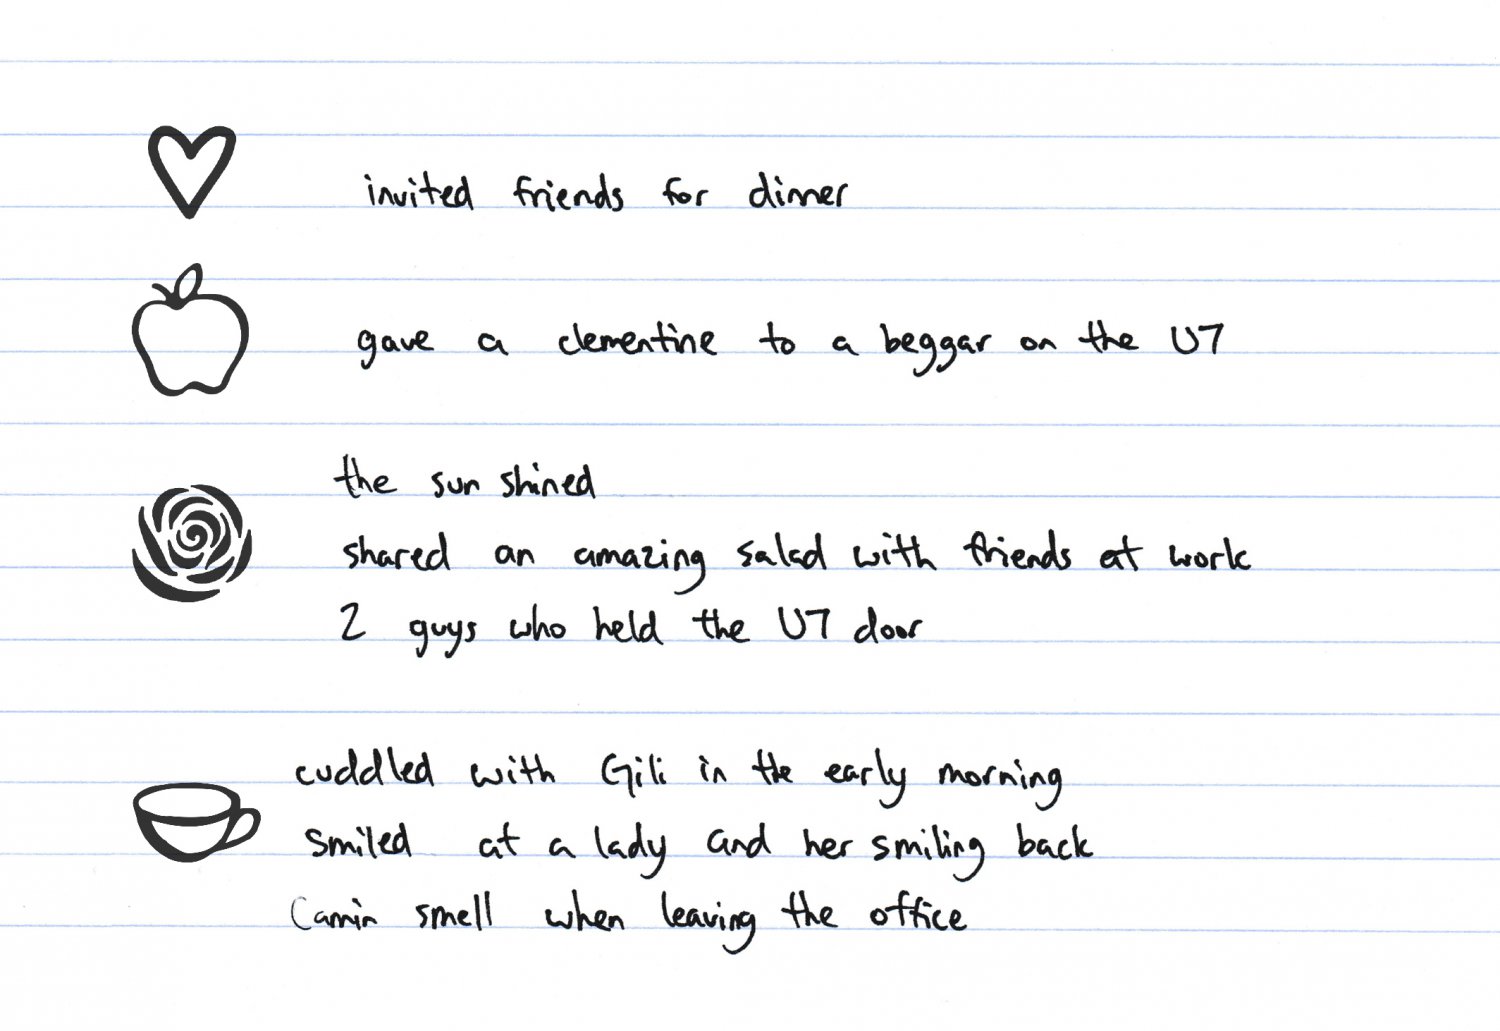 invited friends for dinner
gave a clementine to a beggar on the U7
the sun shined
shared an amazing salad with friends at work
2 guys who held the U7 door
cuddled with Gili in the early morning
smiled at a lady and her smiling back
Camin smell when leaving the office